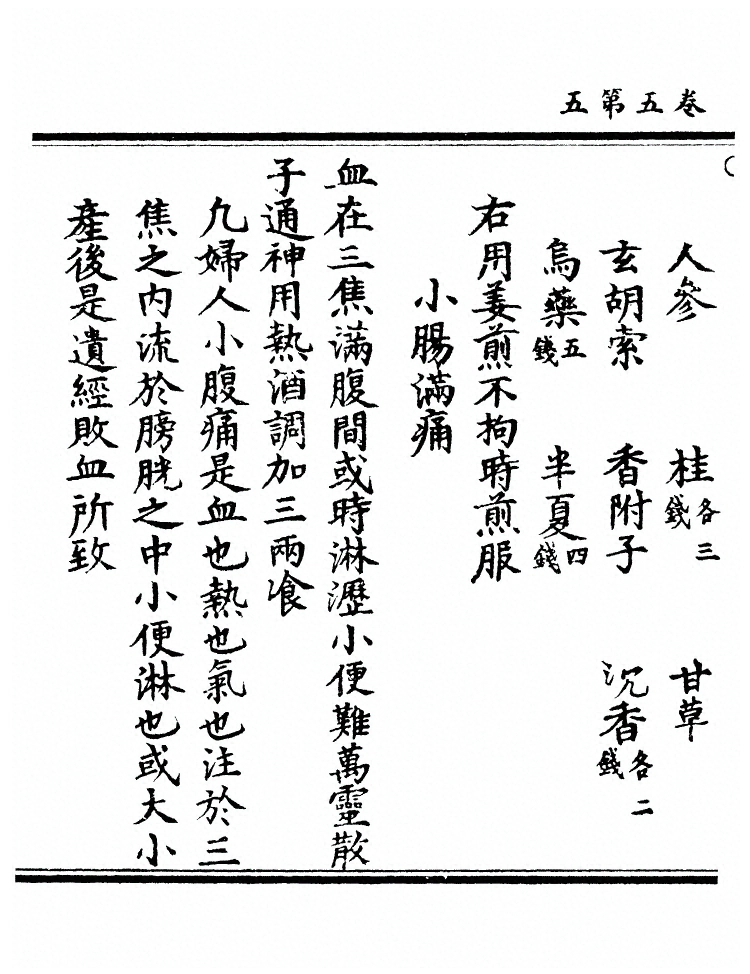 卷五第五
人參　桂各三錢　甘草
玄胡索　香附子　沉香各二錢
烏藥五錢　半夏四錢
右用姜煎不拘時煎服
小腸滿痛
血在三焦滿腹間或時淋瀝小便難萬靈散
子通神用熱酒調加三兩飡
凢婦人小腹痛是血也熱也氣也注於三
焦之内流於膀胱之中小便淋也或大小
產後是遺經敗血所致